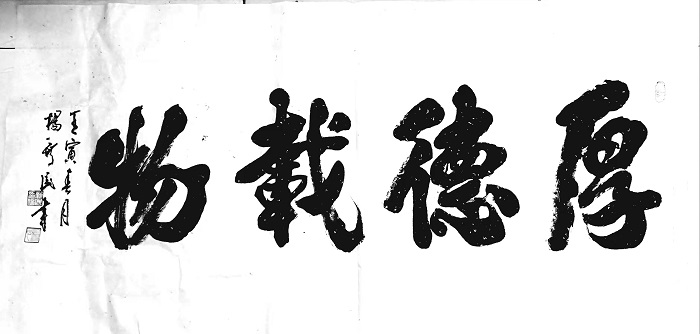 厚德載物
壬寅春月
楊新民書